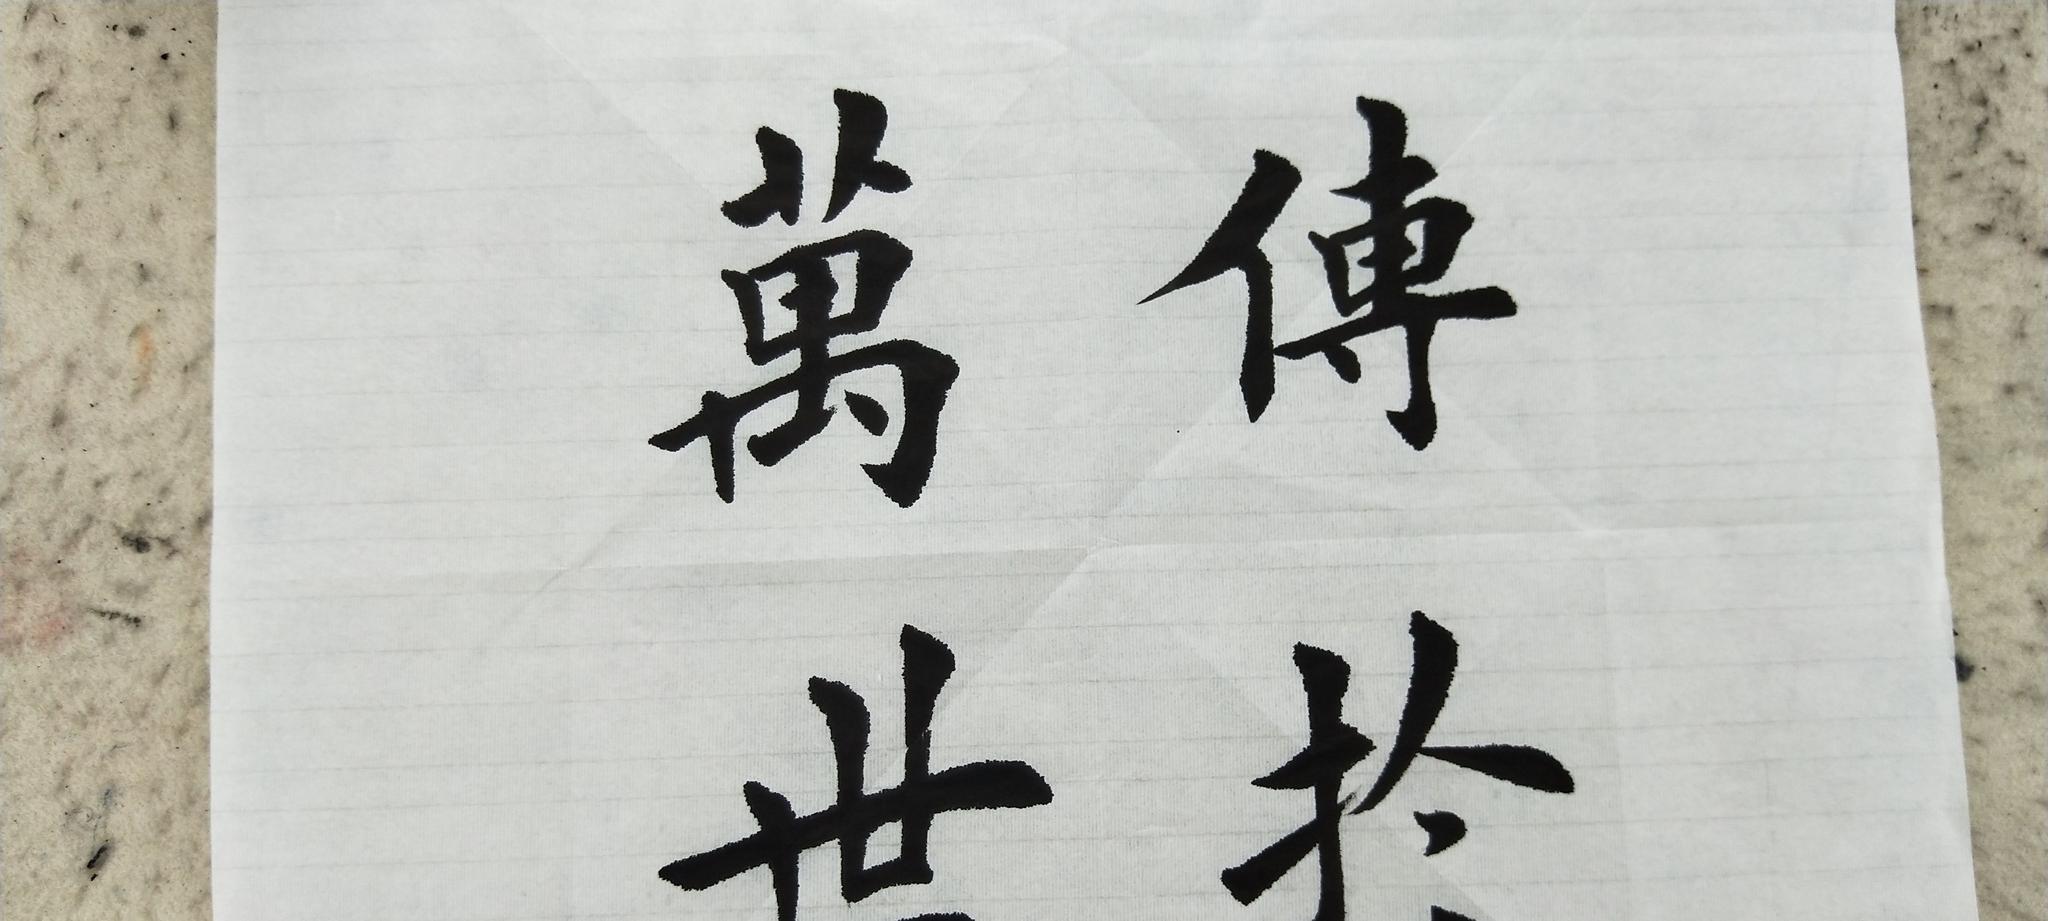 傳於
萬世